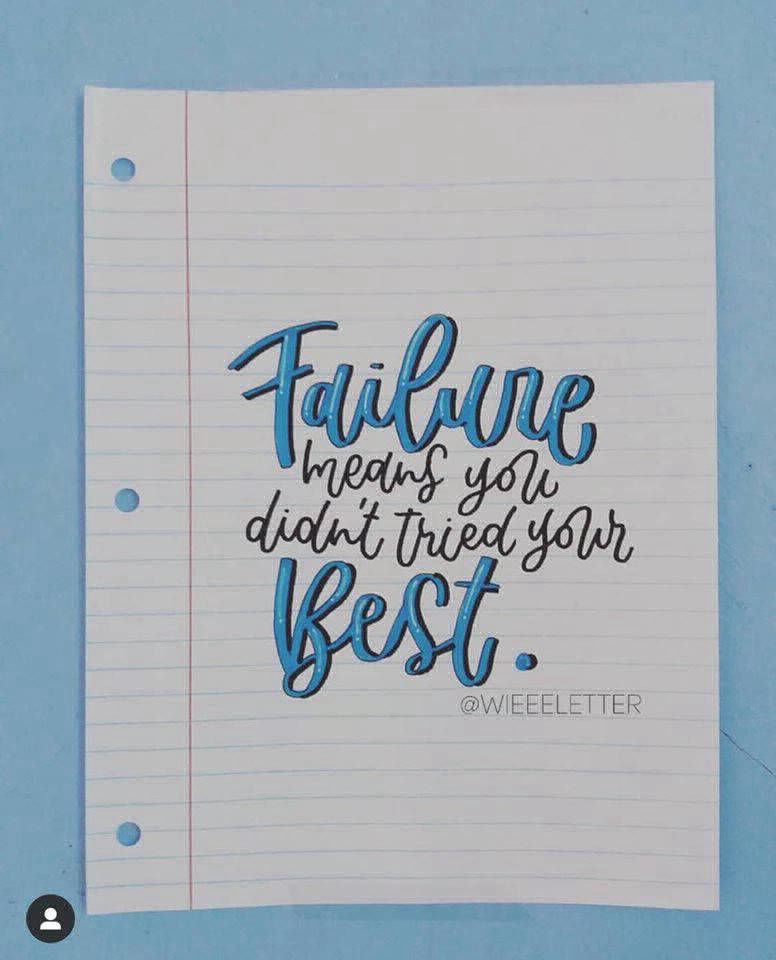 Failure
means you
didn't tried your
Best.
@WIEEELETTER